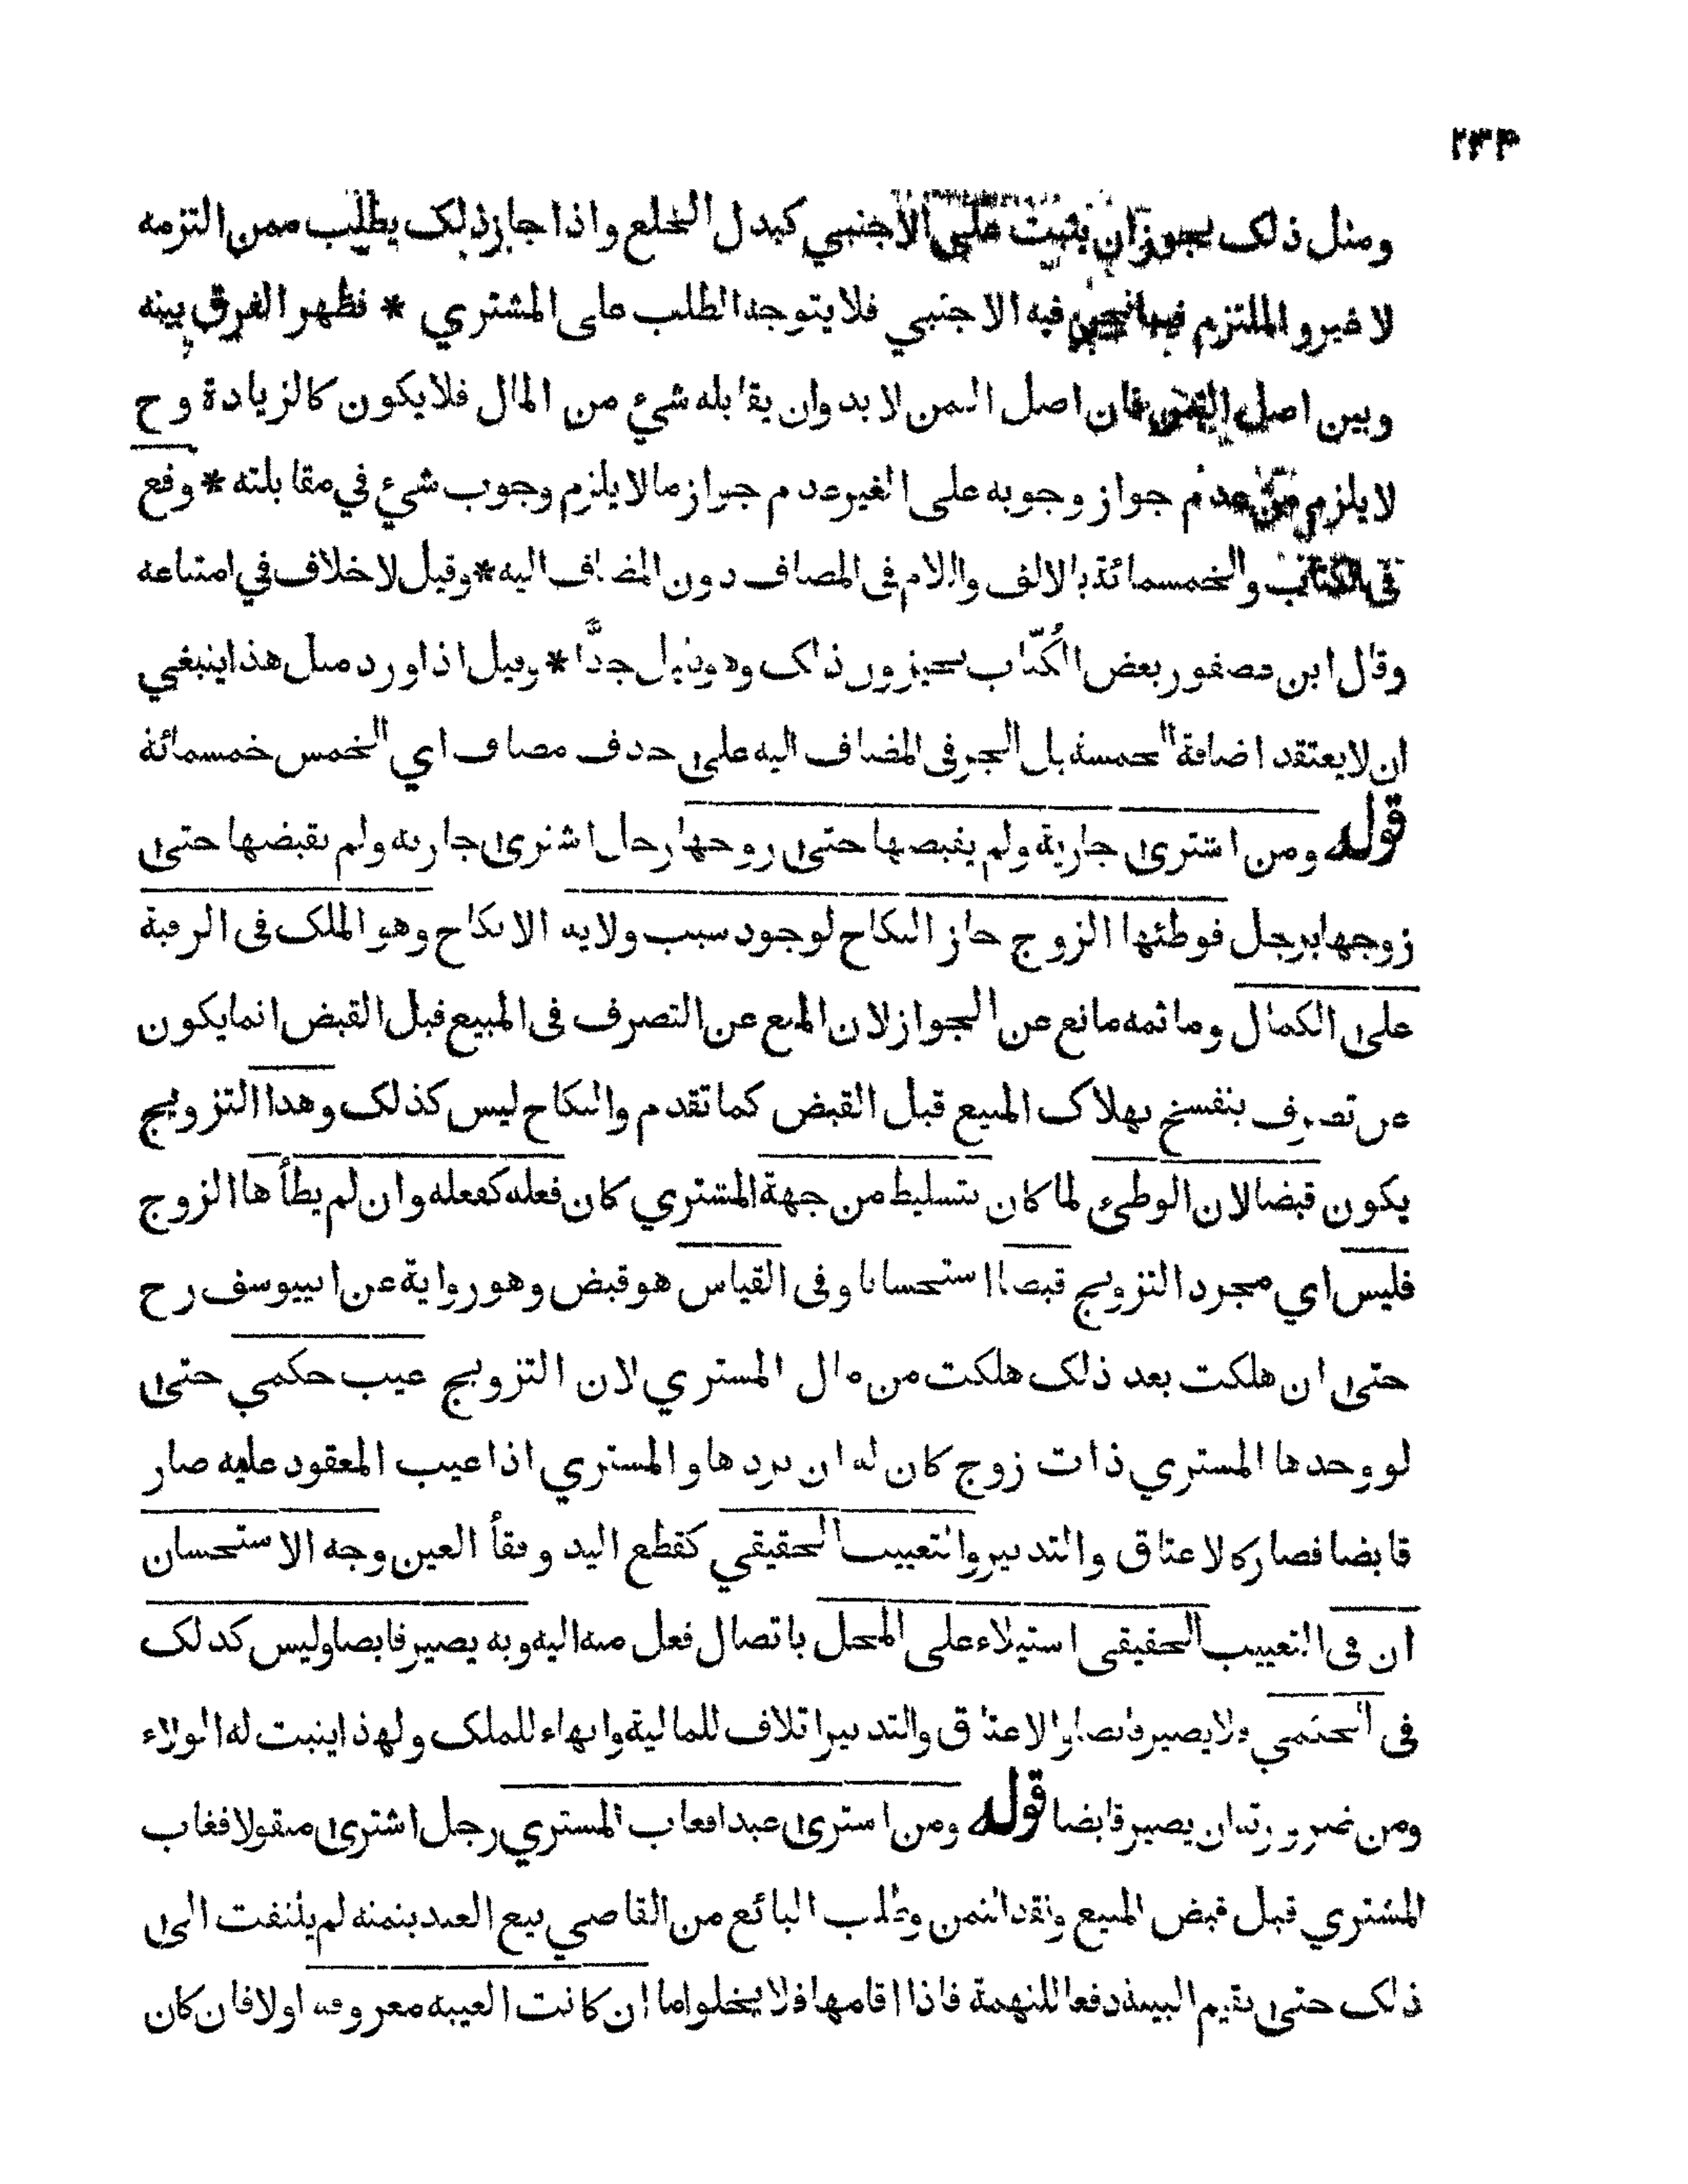 ٢٣٤
ومثل ذلك يجوز ان يثبت على الاجنبي كبدل الخلع واذا جاز ذلك يطلب ممن التزمه
لا غير والملتزم فيما نحن فيه الاجنبي فلا يتوجه الطلب على المشتري * فظهر الفرق بينه
وبين اصل الثمن فان اصل الثمن لا بد وان يقابله شيء من المال فلا يكون كالزيادة وح
لا يلزم من عدم جواز وجوبه على الغير عدم جواز ما لا يلزم وجوب شيء في مقابلته * وقع
في الكتاب والخمسمائة بالالف واللام في المضاف دون المضاف اليه * وقيل لا خلاف في امتناعه
وقال ابن عصفور بعض الكُتّاب يجيزون ذلك وهو قليل جدًّا * وقيل اذا ورد مثل هذا ينبغي
ان لا يعتقد اضافة الخمسة بل الجر في المضاف اليه على حذف مضاف اي الخمس خمسمائة
قوله ومن اشترى جارية ولم يقبضها حتى زوجها رجل اشترى جارية ولم يقبضها حتى
زوجها برجل فوطئها الزوج جاز النكاح لوجود سبب ولاية الانكاح وهو الملك في الرقبة
على الكمال وما ثمه مانع عن الجواز لان المنع عن التصرف في المبيع قبل القبض انما يكون
عن تصرف ينفسخ بهلاك المبيع قبل القبض كما تقدم والنكاح ليس كذلك وهذا التزويج
يكون قبضا لان الوطئ لما كان بتسليط من جهة المشتري كان فعله كفعله وان لم يطأها الزوج
فليس اي مجرد التزويج قبضا استحسانا وفي القياس هو قبض وهو رواية عن ابييوسف رح
حتى ان هلكت بعد ذلك هلكت من مال المشتري لان التزويج عيب حكمي حتى
لو وجدها المشتري ذات زوج كان له ان يردها والمشتري اذا عيب المعقود عليه صار
قابضا فصار كالاعتاق والتدبير والتعييب الحقيقي كقطع اليد وفقأ العين وجه الاستحسان
ان في التعييب الحقيقي استيلاء على المحل باتصال فعل منه اليه وبه يصير قابضا وليس كذلك
في الحكمي فلا يصير قابضا والاعتاق والتدبير اتلاف للمالية وانهاء للملك ولهذا يثبت له الولاء
ومن ضرورته ان يصير قابضا قوله ومن اشترى عبدا فغاب المشتري رجل اشترى منقولا فغاب
المشتري قبل قبض المبيع ونقد الثمن وطلب البائع من القاضي بيع العبد بثمنه لم يلتفت الى
ذلك حتى يقيم البينة دفعا للتهمة فاذا اقامها فلا يخلو اما ان كانت الغيبة معروفة اولا فان كان